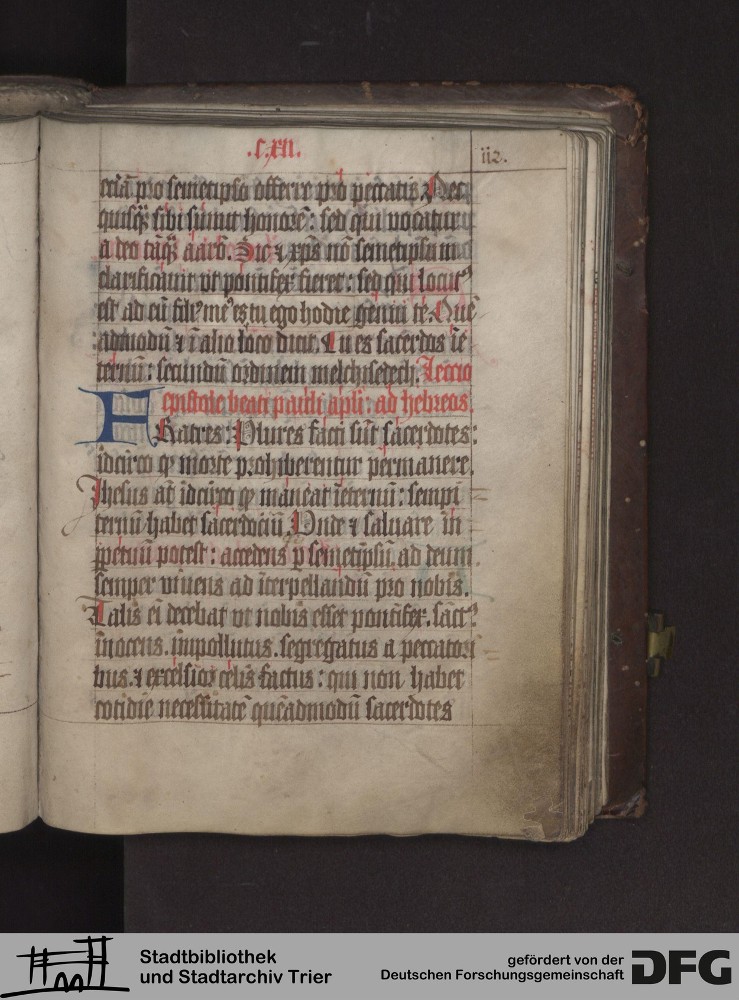 .C.XII.
112.
eciā pro semetipso offerre pro peccatis. Nec
quisq̄ȝ sibi sumit honorē: sed qui vocatur
a deo tāq̄ȝ aarō. Sic ⁊ xp̄s nō semetipsū
clarificauit vt pontifex fieret: sed qui locut⁹
est ad eū fili⁹ me⁹ es tu ego hodie genui te. Quē
admodū ⁊ ī alio loco dicit. Tu es sacerdos ī e
ternū: secundū ordinem melchisedech. Leccio
epistole beati pauli apli: ad hebreos.
FRatres: Plures facti sūt sacerdotes:
idcirco ꝙ morte prohiberentur permanere.
Jhesus at̄ idcirco ꝙ maneat ī eternū: sempi
ternū habet sacerdociū. Vnde ⁊ saluare in
ꝑpetuū potest: accedens ꝑ semetipsū ad deum.
semper viuens ad īterpellandū pro nobis.
Talis eī decebat vt nobis esset pontifex. sāct⁹
īnocens. īmpollutus. segregatus a peccatori
bus. ⁊ excelsior celis factus: qui non habet
cotidie necessitatē quēadmodū sacerdotes
Stadtbibliothek
und Stadtarchiv Trier
gefördert von der
Deutschen Forschungsgemeinschaft
DFG